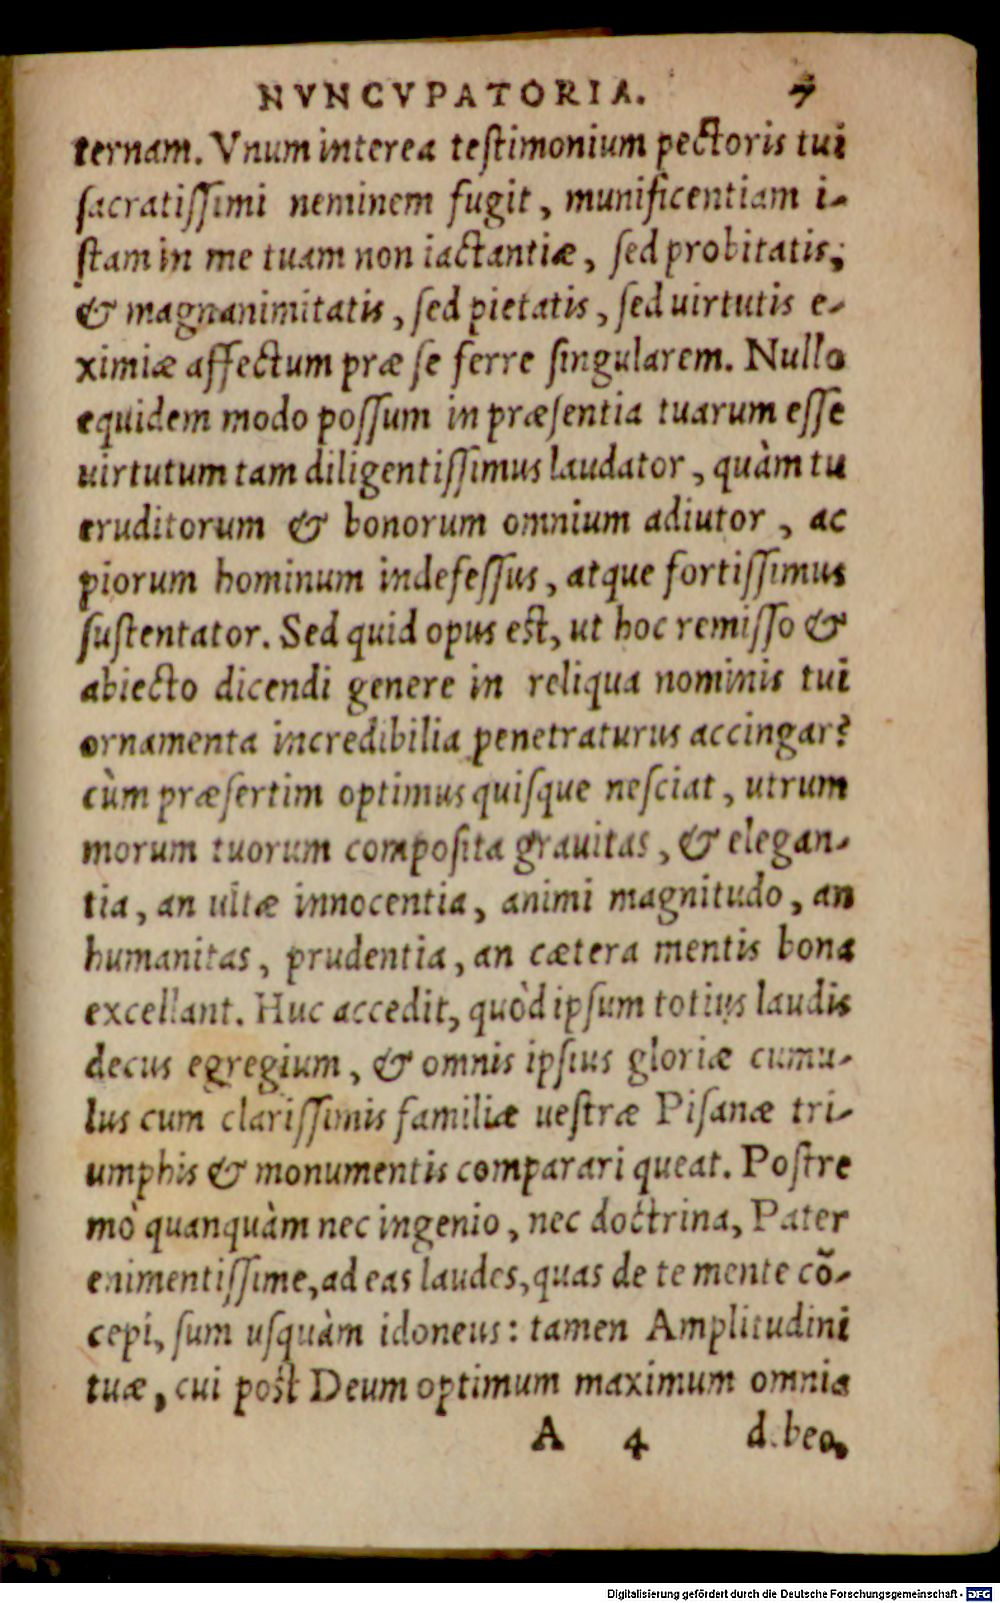 NVNCVPATORIA. 7
ternam. Vnum interea teſtimonium pectoris tui
ſacratiſſimi neminem fugit, munificentiam i-
ſtam in me tuam non iactantiæ, ſed probitatis;
& magnanimitatis, ſed pietatis, ſed uirtutis e-
ximiæ affectum præ ſe ferre ſingularem. Nullo
equidem modo poſſum in præſentia tuarum eſſe
uirtutum tam diligentiſſimus laudator, quàm tu
eruditorum & bonorum omnium adiutor, ac
piorum hominum indefeſſus, atque fortiſſimus
ſuſtentator. Sed quid opus eſt, ut hoc remiſſo &
abiecto dicendi genere in reliqua nominis tui
ornamenta incredibilia penetraturus accingar?
cùm præſertim optimus quiſque neſciat, utrum
morum tuorum compoſita grauitas, & elegan-
tia, an uitæ innocentia, animi magnitudo, an
humanitas, prudentia, an cætera mentis bona
excellant. Huc accedit, quòd ipſum totius laudis
decus egregium, & omnis ipſius gloriæ cumu-
lus cum clariſſimis familiæ ueſtræ Piſanæ tri-
umphis & monumentis comparari queat. Poſtre
mò quanquàm nec ingenio, nec doctrina, Pater
enimentiſſime, ad eas laudes, quas de te mente cõ-
cepi, ſum uſquàm idoneus: tamen Amplitudini
tuæ, cui poſt Deum optimum maximum omnia
A 4 debeo,
Digitalisierung gefördert durch die Deutsche Forschungsgemeinschaft - DFG